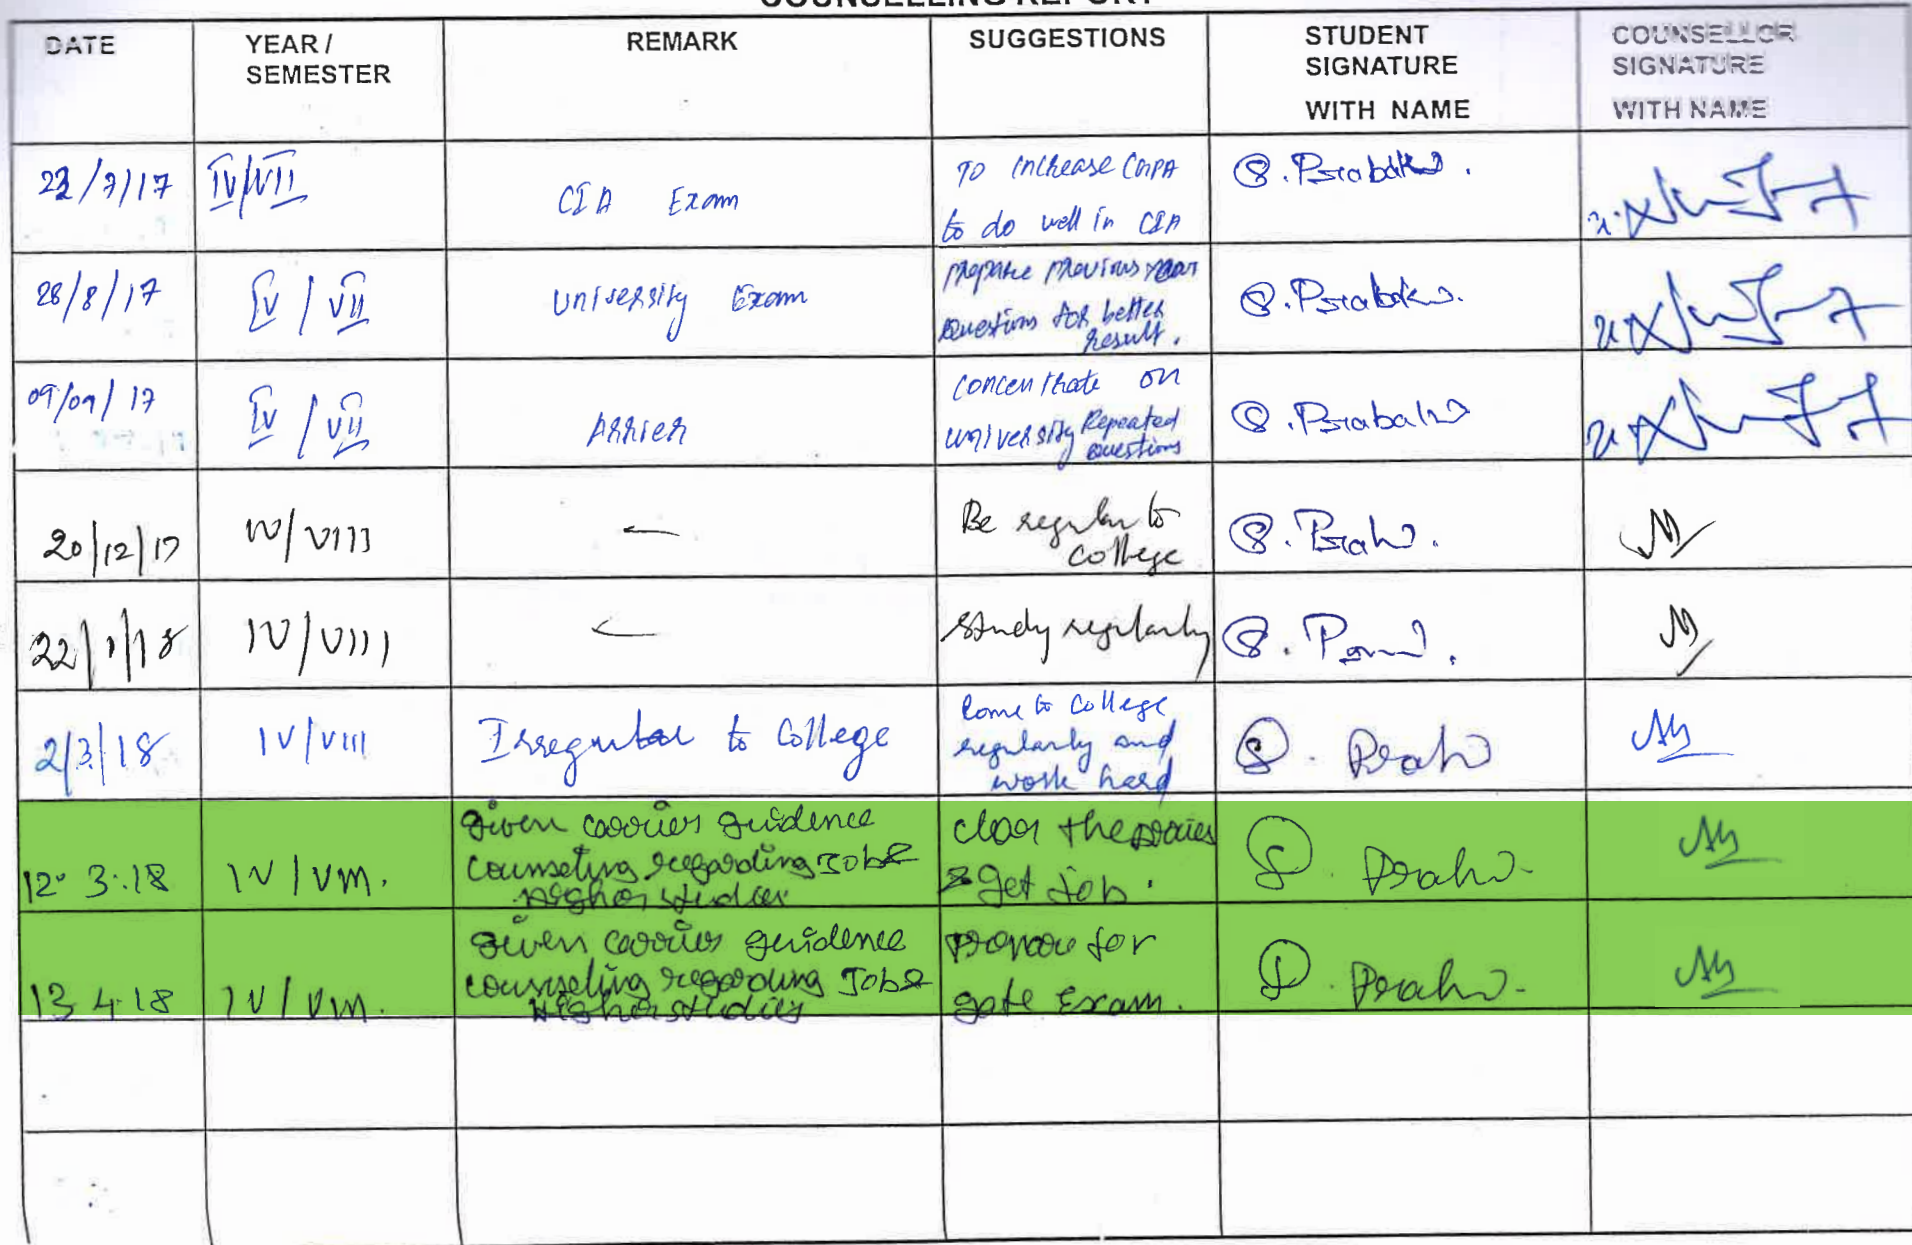 COUNSELLING REPORT
DATE
YEAR /
SEMESTER
REMARK
SUGGESTIONS
STUDENT
SIGNATURE
WITH NAME
COUNSELLOR
SIGNATURE
WITH NAME
/7/17
IV/VII
CIA Exam
TO increase CGPA
to do well in CIA
S. Prabak
28/8/17
IV / VII
University Exam
prepare previous year
questions for better
result.
S. Prabak
09/09/17
IV / VII
Arrier
concentrate on
university Repeated
questions
S. Prabak
20/12/17
IV/VIII
Be regular to
college
S.
22/1/18
IV/VIII
study regularly
S.
2/3/18
IV/VIII
Irregular to College
Come to College
regularly and
work hard
S.
12.3.18
IV / VIII.
given carrier guidence
counseling regarding Job &
higher studies
clear the
& get Job.
S.
13.4.18
IV / VIII.
given carrier guidence
counseling regarding Job &
Higher studies
prepare for
gate Exam.
S.